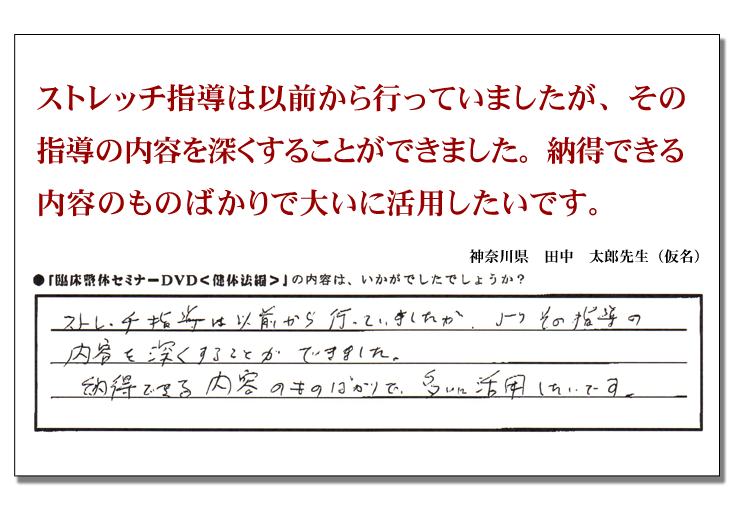 ストレッチ指導は以前から行っていましたが、その
指導の内容を深くすることができました。納得できる
内容のものばかりで大いに活用したいです。
神奈川県　田中　太郎先生（仮名）
●「臨床整体セミナーDVD＜健体法編＞」の内容は、いかがでしたでしょうか？
ストレッチ指導は以前から行っていましたが、よりその指導の
内容を深くすることができました。
納得できる内容のものばかりで、多いに活用したいです。